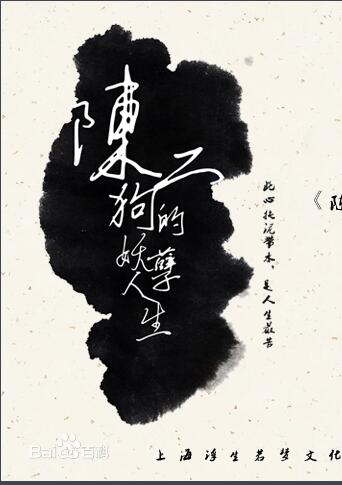 陳二狗的妖孽人生
此心拖泥带水，是人生最苦
《陈
Bai百科
上海浮生若梦文化